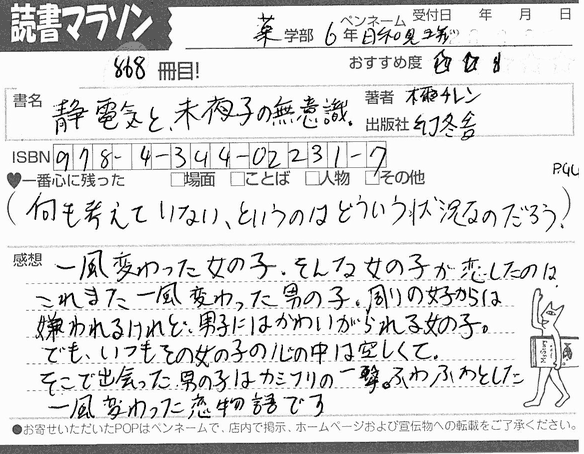 読書マラソン
薬学部 6年 ペンネーム 日和見 受付日 年 月 日
868冊目! おすすめ度
書名 静電気と、未夜子の無意識。
著者 木爾チレン
出版社 幻冬舎
ISBN 978-4-344-02231-7
♥一番心に残った □場面 □ことば □人物 □その他
(何も考えていない、というのはどういう状況なのだろう?)
感想 一風変わった女の子。そんな女の子が恋したのは
これまた一風変わった男の子。周りの女子からは
嫌われるけれど、男子にはかわいがられる女の子。
でも、いつもその女の子の心の中は空しくて。
そこで出会った男の子はカミナリの一撃。ふわふわとした
一風変わった恋物語です
●お寄せいただいたPOPはペンネームで、店内で掲示、ホームページおよび宣伝物への転載をご了承ください。